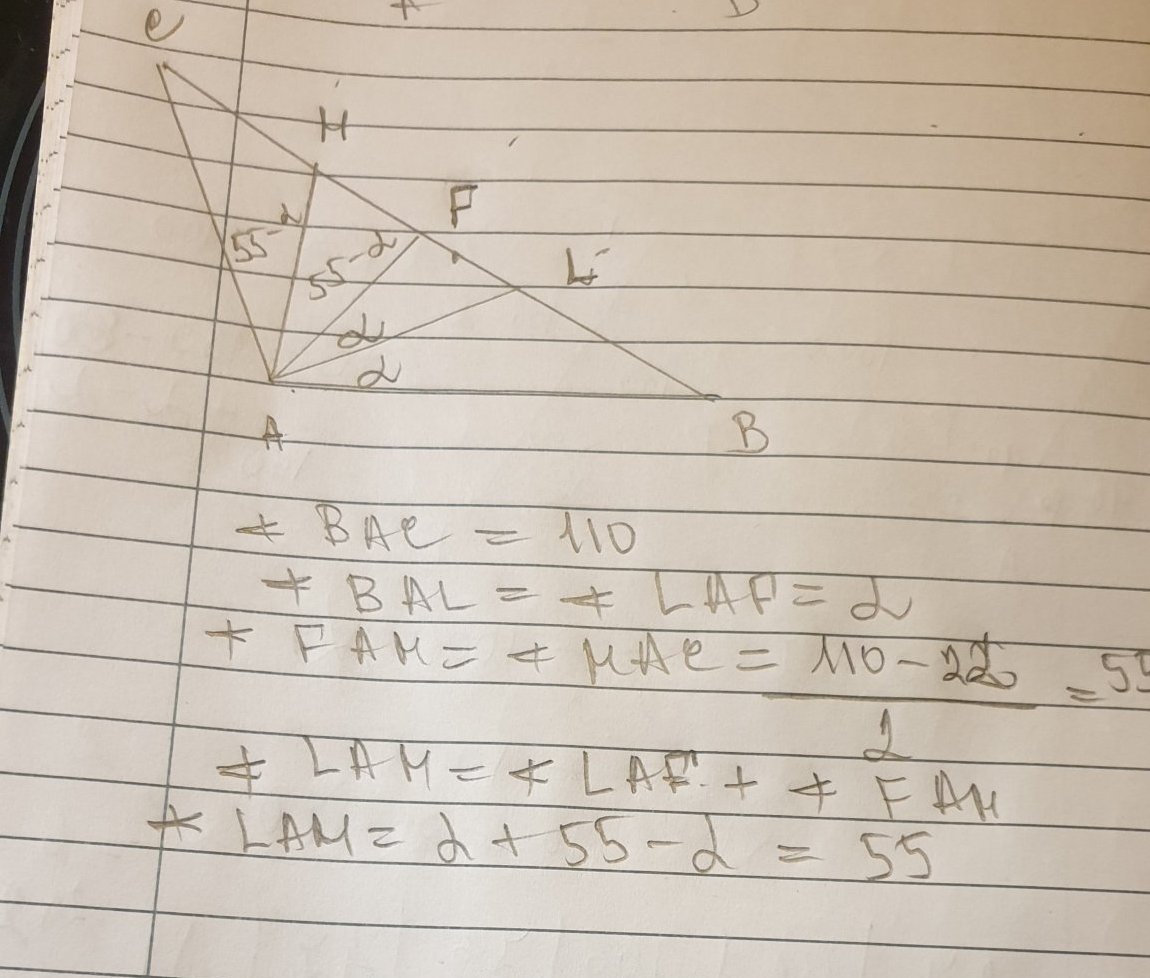 C
H
F
L
55-α
55-α
α
α
A
B
∢ BAC = 110
∢ BAL = ∢ LAF = α
∢ FAM = ∢ MAC = 110 - 2α / 2 = 55
∢ LAM = ∢ LAF + ∢ FAM
∢ LAM = α + 55 - α = 55